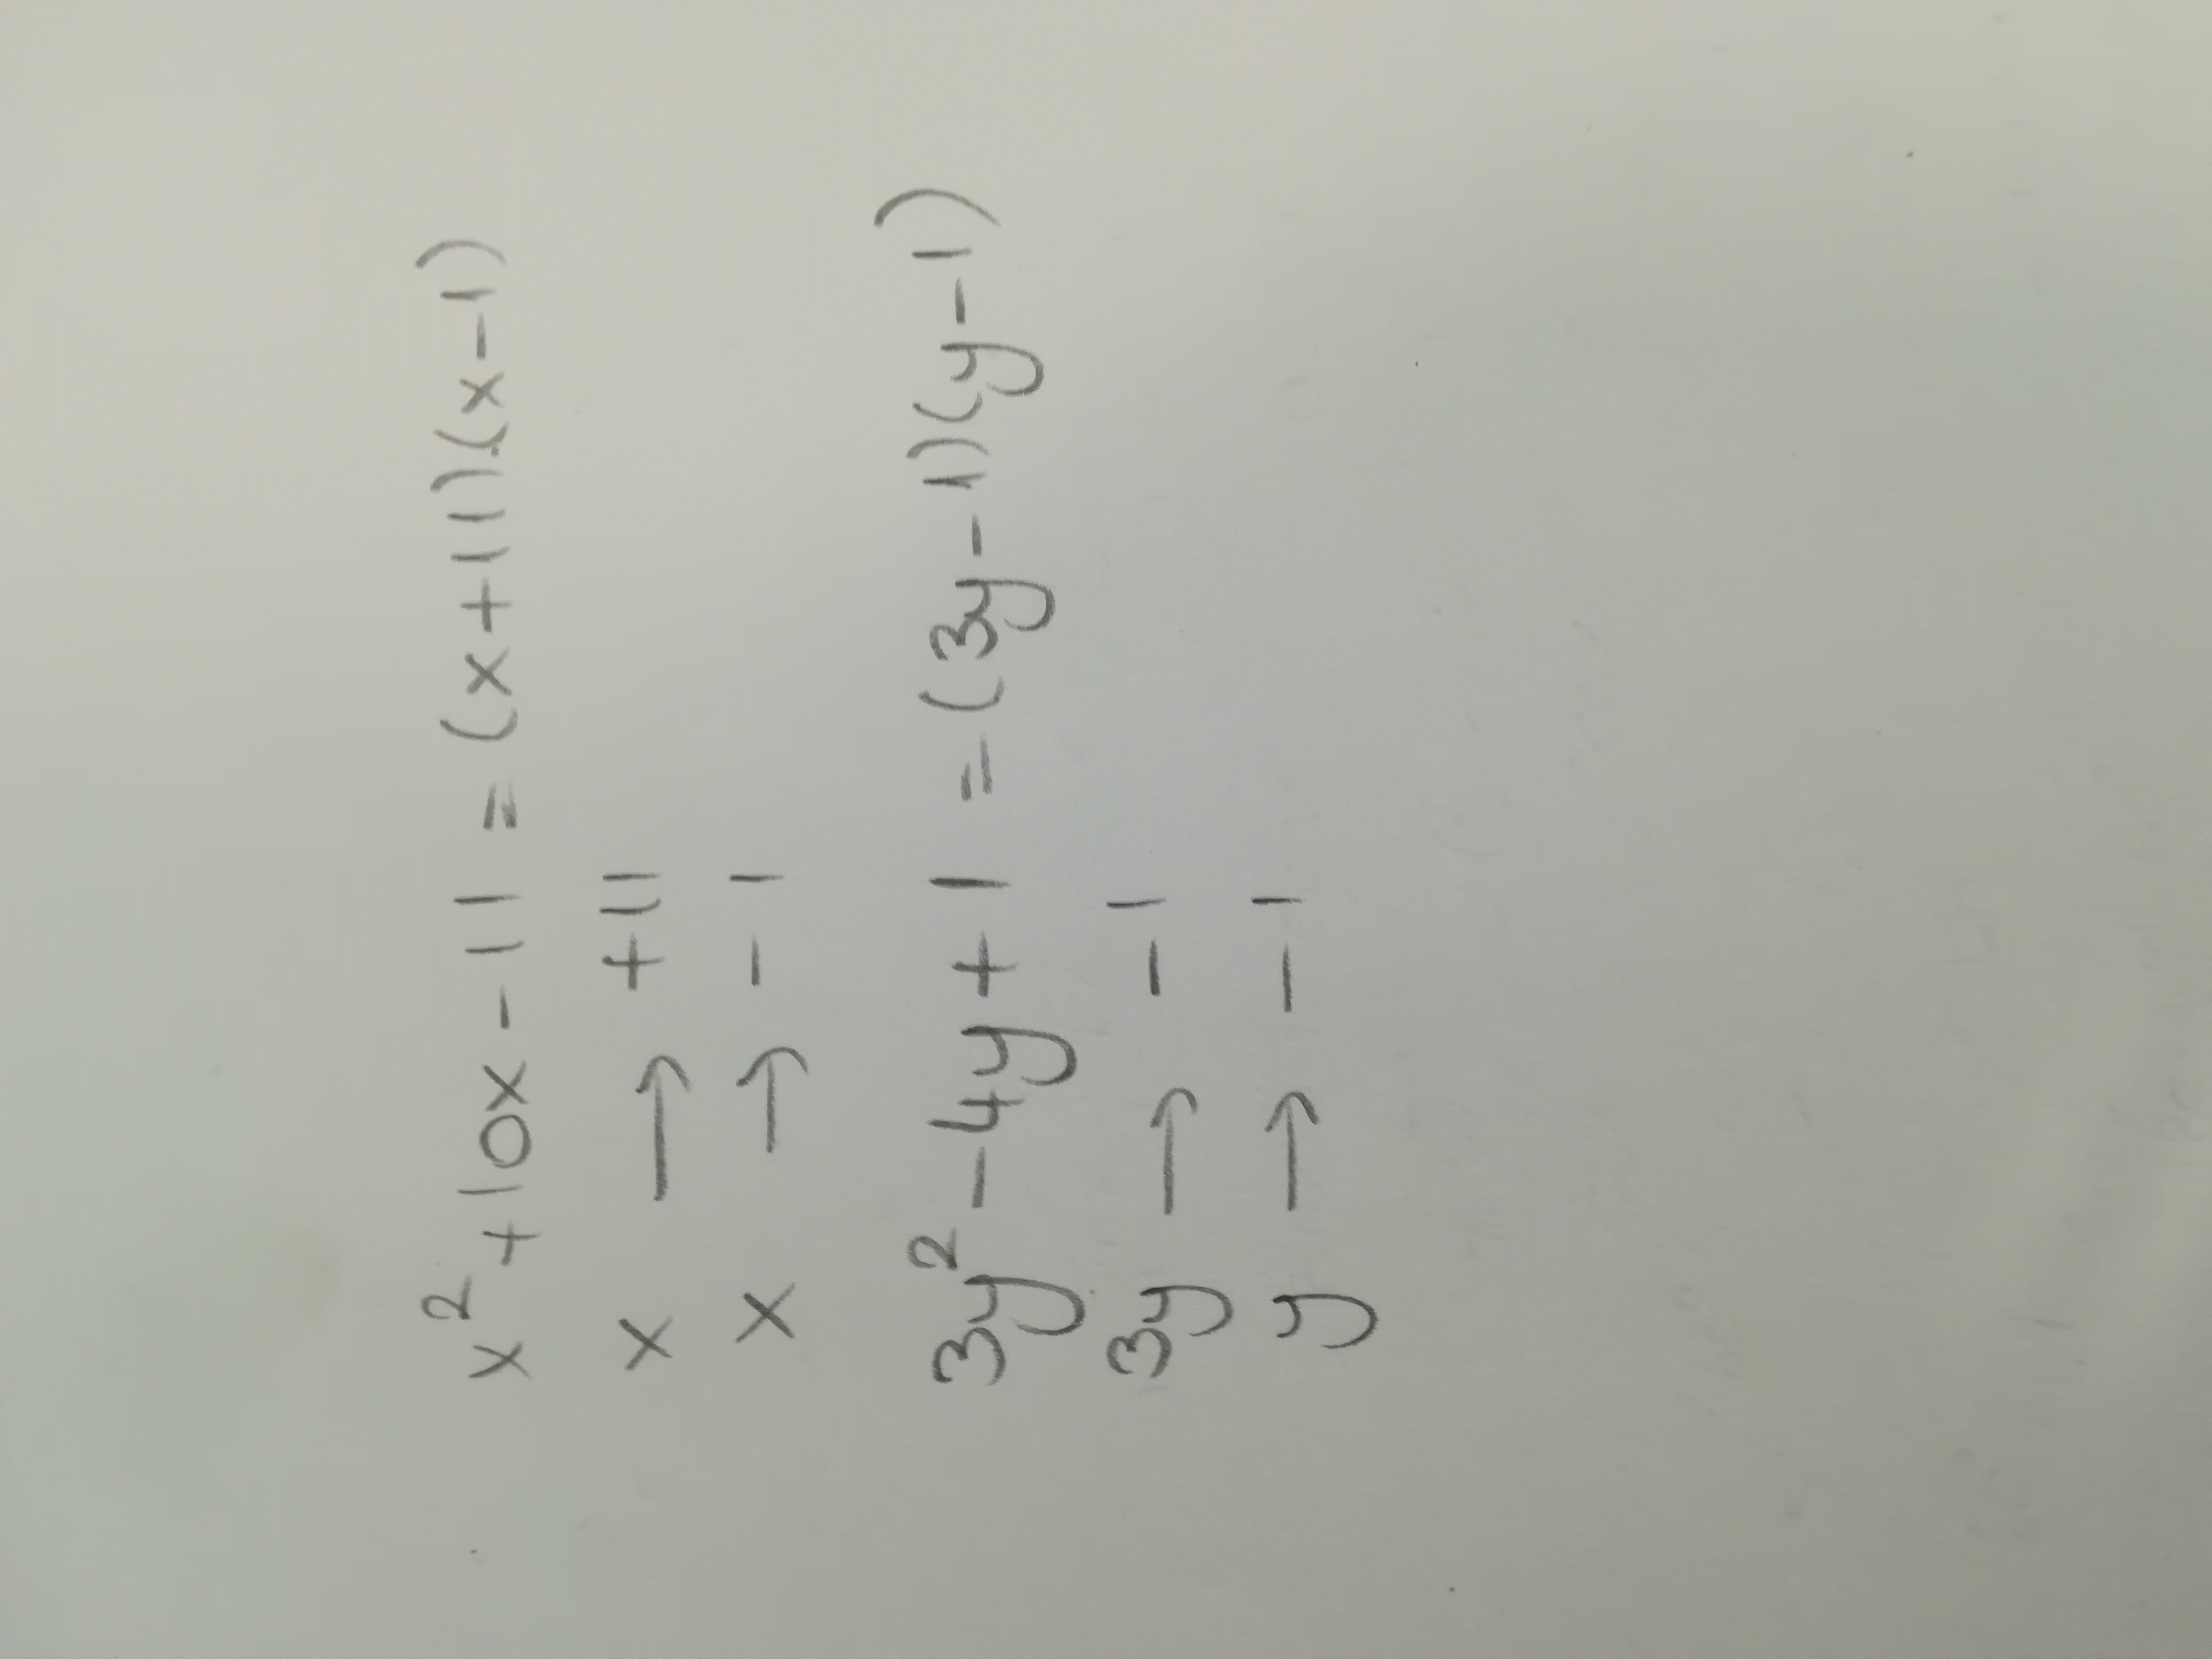 x² + 10x - 11 = (x + 11).(x - 1)
x → +11
x → -1
3y² - 4y + 1 = (3y - 1)(y - 1)
3y → -1
y → -1